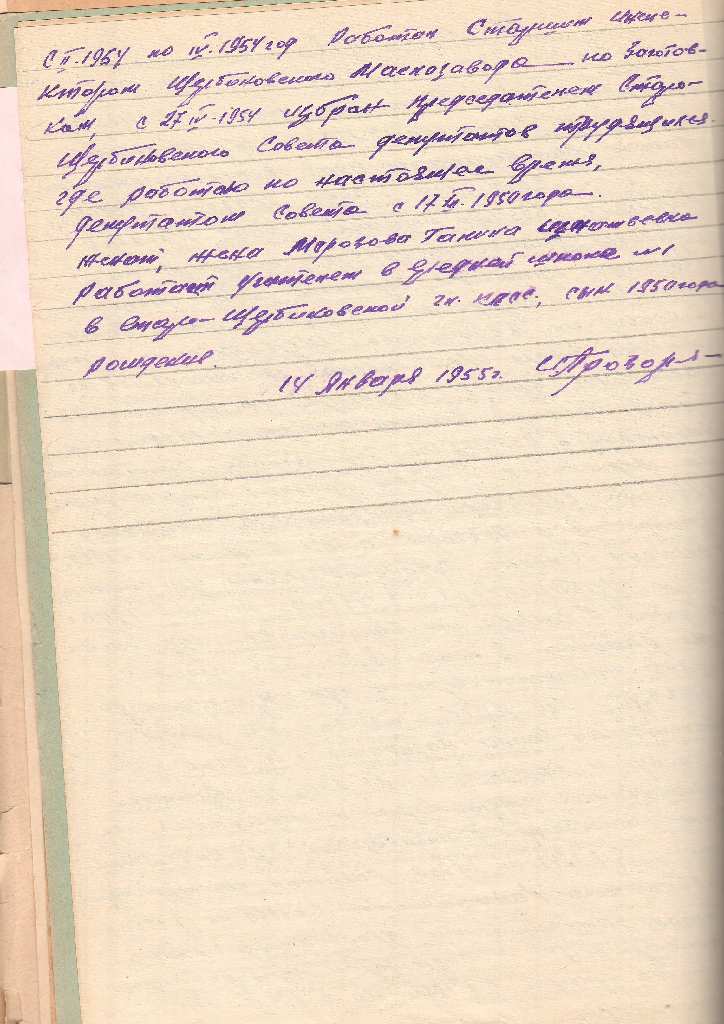 С II-1954 по IV-1954 год Работал Старшим инспе-
ктором Щербиновского Маслозавода по Заготов-
кам, с 27 IV-1954 избран председателем Старо-
Щербиновского Совета депутатов трудящихся
где работаю по настоящее время,
депутатом Совета с 17 1950 года.
женат, жена Морозова Галина Игнатьевна
Работает учителем в средней школе №1
в Старо-Щербиновской сын 1950 года
рождения.
14 Января 1955г.